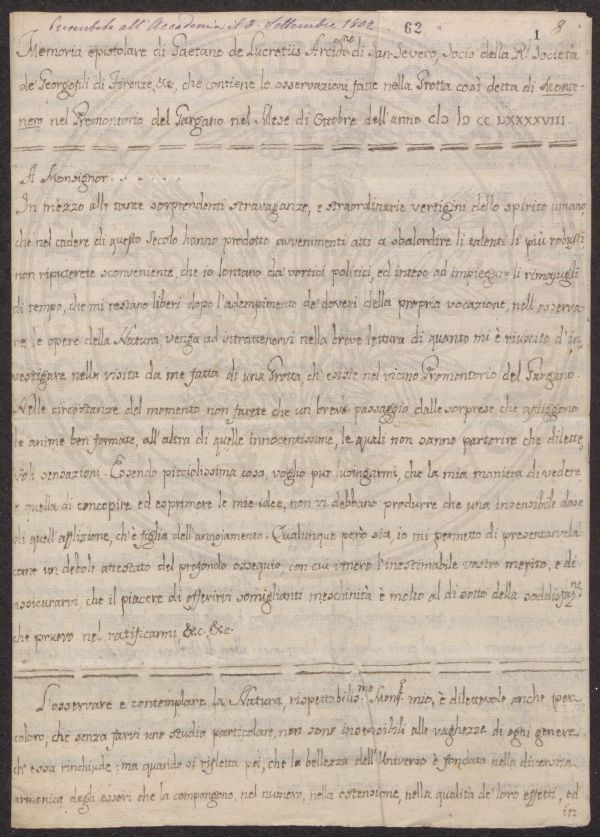 Presentata all'Accademia il 3 Settembre 1802
62
1 8
Memoria epistolare di Gaetano de Lucretiis Arcidno di San-Severo, Socio della Rl. Società
de' Georgofili di Firenze, &c, che contiene le osservazioni fatte nella Grotta così detta di Monte-
nero nel Promontorio del Gargano nel Mese di Ottobre dell'anno CIↃ IↃ CC LXXXXVIII.
A Monsignor . . . . . .
In mezzo alle tante sorprendenti stravaganze, e straordinarie vertigini dello spirito umano,
che nel cadere di questo Secolo hanno prodotto avvenimenti atti a sbalordire li talenti li più robusti
non riputerete sconveniente, che io lontano da' vortici politici, ed inteso ad impiegare li rimasugli
di tempo, che mi restano liberi dopo l'adempimento de' doveri della propria vocazione, nell'osserva-
re le opere della Natura, venga ad intrattenervi nella breve lettura di quanto mi è riuscito d'in-
vestigare nella visita da me fatta di una Grotta, ch'esiste nel vicino Promontorio del Gargano.
Nelle circostanze del momento non farete che un breve passaggio dalle sorprese, che affliggono
le anime ben formate, all'altra di quelle innocentissime, le quali non sanno partorire che dilette-
voli sensazioni. Essendo picciolissima cosa, voglio pur lusingarmi, che la mia maniera di vedere
e quella di concepire ed esprimere le mie idee, non vi debbano produrre che una insensibile dose
di quell'afflizione, ch'è figlia dell'annojamento. Qualunque però sia, io mi permetto di presentarvela
come un debole attestato del profondo ossequio, con cui venero l'inestimabile vostro merito, e di
assicurarvi, che il piacere di offerirvi somiglianti meschinità è molto al di sotto della soddisfazne
che pruovo nel ratificarmi, &c. &c.
L'osservare e contemplare la Natura, rispettabilismo Monsr mio, è dilettevole anche per
coloro, che senza farvi uno studio particolare, non sono insensibili alle vaghezze di ogni genere
ch'essa rinchiude; ma quando si rifletta poi, che la bellezza dell'Universo è fondata nella diversità
armonica degli esseri che la compongono, nel numero, nella estensione, nella qualità de' loro effetti, ed
in